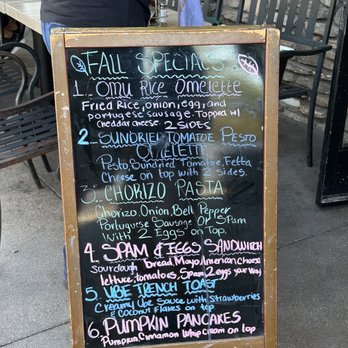 FALL SPECIALS
1. OMU RICE OMELETTE
Fried Rice, onion, egg, and
portugese sausage. Topped w/
cheddar cheese 2 SIDES
2. SUNDRIED TOMATOE PESTO
OMELETTE
Pesto, Sundried Tomatoe, Fetta
Cheese on top with 2 sides.
3. CHORIZO PASTA
Chorizo, Onion, Bell Pepper
Portuguese Sausage Or Spam
With 2 Eggs on Top
4. SPAM & EGGS SANDWICH
sourdough bread, Mayo, American Cheese
lettuce, tomatoes, Spam 2 eggs your way
5. UBE FRENCH TOAST
Creamy Ube Sauce with Strawberries
& Coconut Flakes on top
6. PUMPKIN PANCAKES
Pumpkin, Cinnamon Whip Cream on top